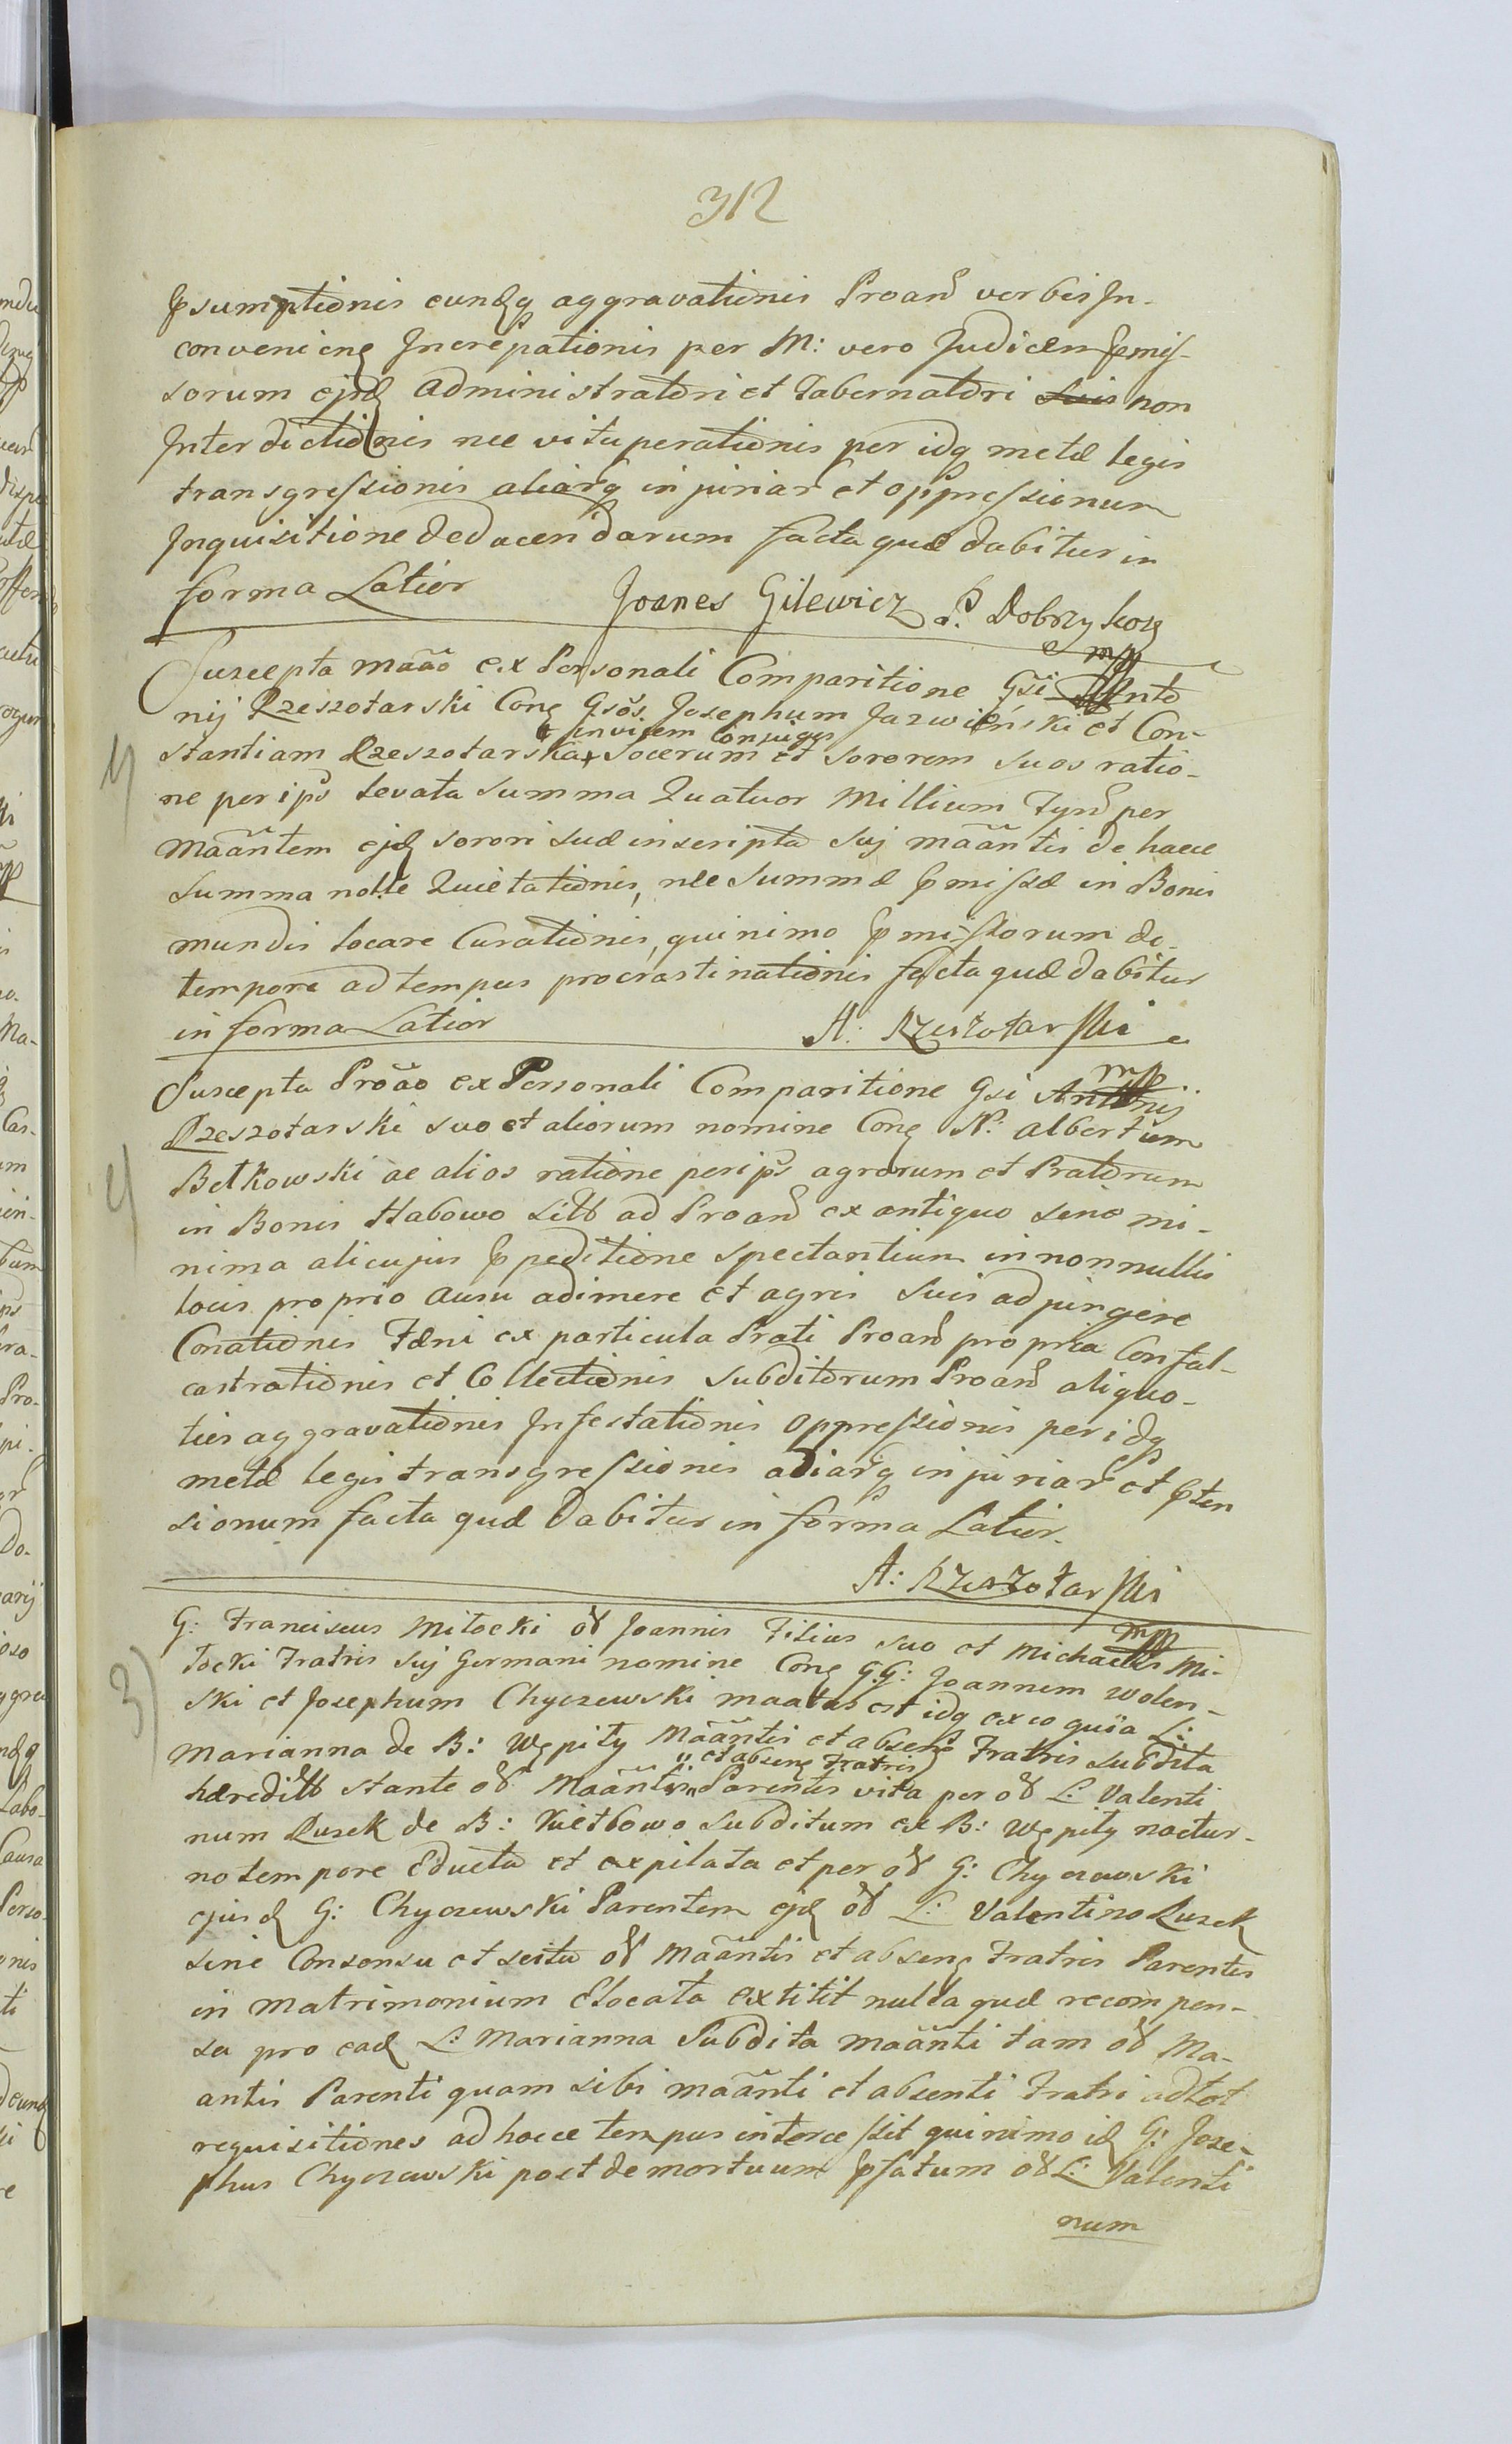 312
psumptionis eundq aggravationis Proand verbis In-
convenienq Increpationis per M: vero Judicem pmis-
sorum ejdq Administratori et Tabernatori non
Interdictionis nec vituperationis per idq metæ legis
transgressionis aliarq injuriar et oppressionum
Inquisitione deducendarum facta quæ dabitur in
forma Latior Joanes Gilewicz P. Dobrzykow
mp
Suscepta mãão ex Personali Comparitione Gsi Anto
nij Rzeszotarski Conq Gsos Josephum Jazwiński et Con-
invicem Conjuges
stantiam Rzeszotarska Socerum et sororem suos ratio-
1)
ne per ips levata Summa Quatuor Millium Fynd per
Mããntem ejdq sorori suæ inscripta Suj mããntis de hacce
Summa nolle Quietationis, nec Summæ pmissæ in Bonis
mundis locare Curationis, quinimo pmissorum de
tempore ad tempus procrastinationis facta quæ dabitur
in forma Latior A: Rzeszotarski
mp
Suscepta Prõão ex Personali Comparitione Gsi Antonij
Rzeszotarski suo et aliorum nomine Conq N: Albertum
2)
Betkowski ac alios ratione per ips agrorum et Pratorum
in Bonis Habowo Sitt ad Proand ex antiquo sine mi-
nima alicujus ppeditione spectantium in nonnullis
locis proprio ausu adimere et agris suis adjungere
Conationis Fæni ex particula Prati Proand propria Confal-
castrationis et Collectionis Subditorum Proand aliquo-
ties aggravationis Infestationis oppressionis per idq
metæ legis transgressionis aliarq injuriar et pten
sionum facta quæ dabitur in forma Latior.
A: Rzeszotarski
mp
G: Franciscus Mitocki od Joannis Filius suo et Michaelis Mi-
tocki Fratris Suj Germani nomine Conq G.G: Joannem Wolen-
3)
ski et Josephum Chyczewski maatus est idq ex eo quia L:
Marianna de B: Wępity Mããntis et absenq Fratris subdita
et absenq Fratris
hæreditt stante od Mããntis Parentis vita per od L: Valenti
num Rusek de B: Kietbowo Subditum ex B: Wępity noctur-
no tempore Educta et expilata et per od G: Chyczewski
ejusdq G: Chyczewski Parentem ejdq od L: Valentino Rusek
sine Consensu et scitu od Mããntis et absenq Fratris Parentis
in Matrimonium Elocata extitit nulla quæ recompen-
sa pro eadq L: Marianna Subdita mããnti tam od Ma-
antis Parenti quam sibi mããnti et absenti Fratri ad tot
requisitiones ad hocce tempus intercessit quinimo idq G: Jose-
phus Chyczewski post demortuum pfatum od L: Valenti
num